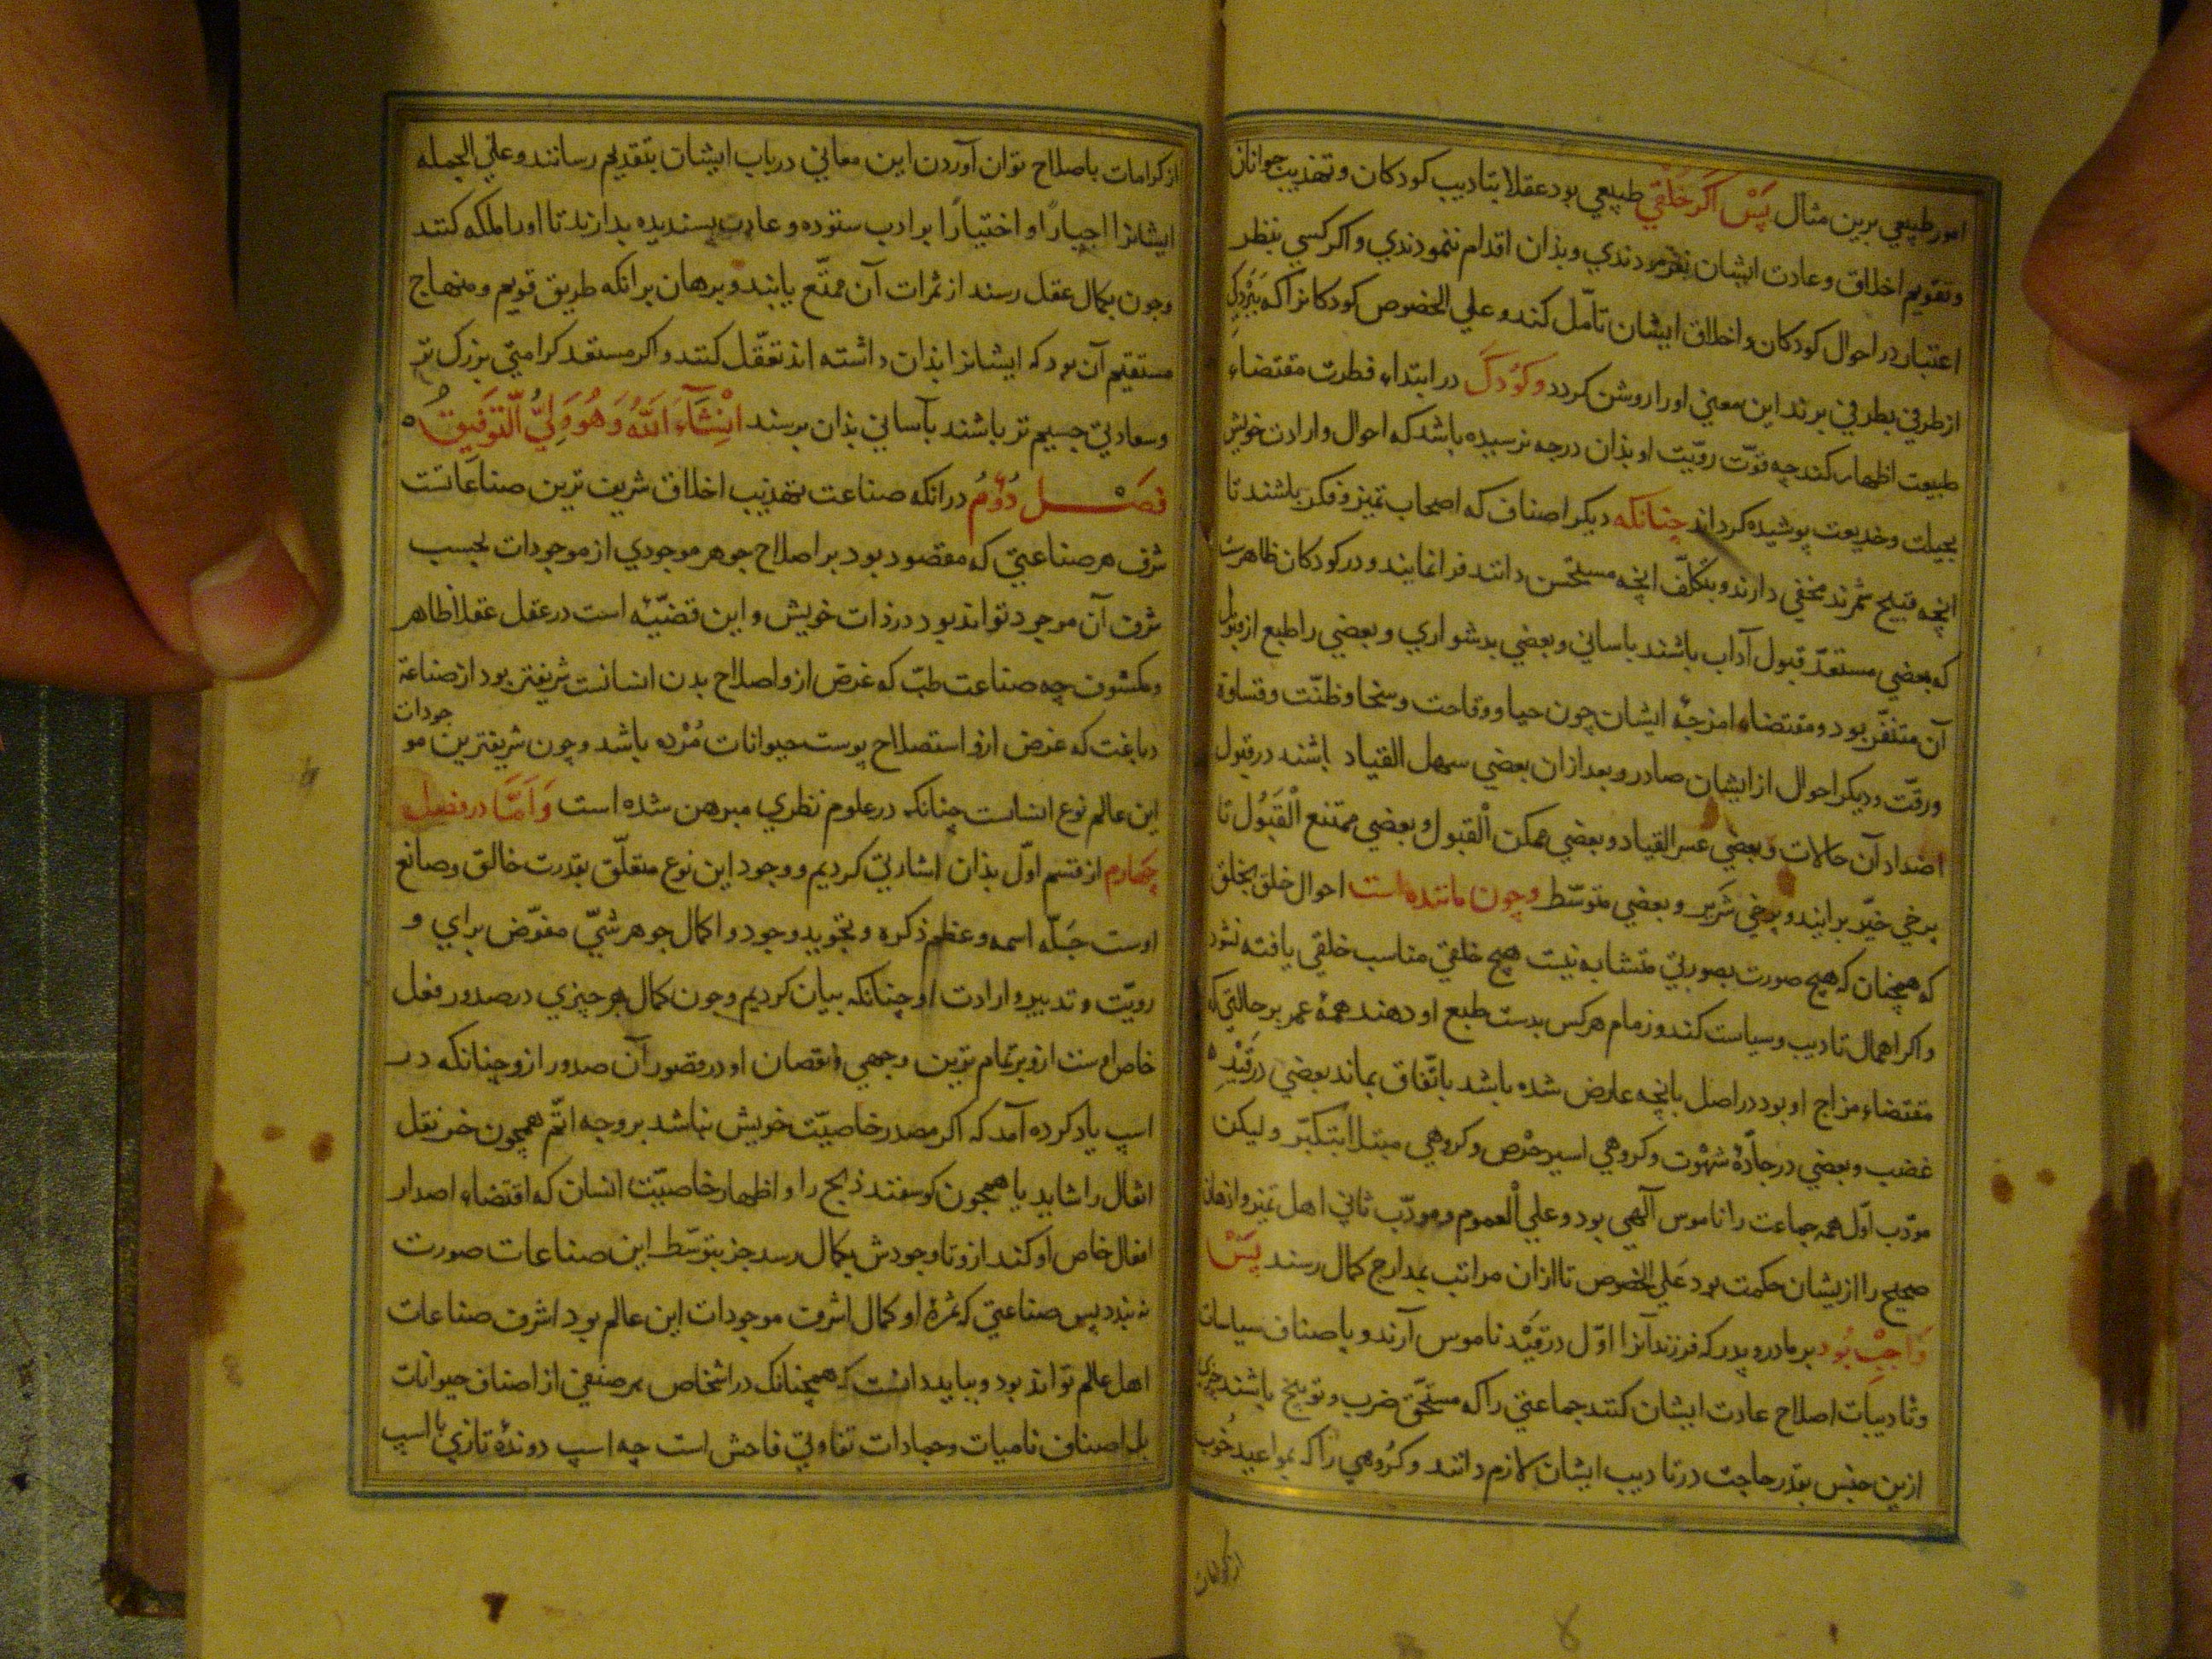 امور طبیعی برین مثال پَسْ اَکَر خُلقی طبیعی بود عقلا بتادیب کودکان و تهذیب جوانان
و تقویم اخلاق و عادت ایشان نفرمودندی و بذان اقدام ننمودندی و اکر کسی بنظر
اعتبار در احوال کودکان و اخلاق ایشان تأمّل کند و علی الخصوص کودکانرا که ببردکی
از طرفی بطرفی برند این معنی اورا روشن کردد وکودک در ابتداء فطرت مقتضاء
طبیعت اظهار کند چه قوّت رویّت او بذان درجه نرسیده باشد که احوال و ارادت خویش
بحیلت و خدیعت پوشیده کرداند چنانکه دیکر اصناف که اصحاب تمیز و فکر باشند تا
انچه قبیح شمرند مخفی دارند و بتکلّف انچه مستحسن دانند فرا نمایند و در کودکان ظاهرست
که بعضی مستعدّ قبول آداب باشند باسانی و بعضی بدشواری و بعضی را طبع از قبول
آن متنفّر بود و مقتضاء امزجهٔ ایشان چون حیا و وقاحت و سخا و ظنّت و قساوة
و رقّت و دیکر احوال از ایشان صادر و بعد ازان بعضی سهل القیاد باشند در قبول
اضداد آن حالات و بعضی عسر القیاد و بعضی ممکن اْلقبول و بعضی ممتنع اْلقَبُول تا
برخی خیّر برایند و برخی شَریر و بعضی متوسّط وچون ماننده است احوال خلق بخلق
که همچنان که هیچ صورت بصورتی متشابه نیست هیچ خلقی مناسب خلقی یافته نشود
و اکر اهمال تادیب و سیاست کند و زمام هرکس بدست طبع او دهند همهٔ عمر بر حالتی که
مقتضاء مزاج او بود در اصل یا بانچه عارض شده باشد باتّفاق بماند بعضی در قَیْدِ
غضب و بعضی در جادّهٔ شهْوت و کروهی اسیر حرْص و کروهی مبتلا بتکبّر و لیکن
مودّب اوّل همه جماعت را ناموس آلهی بود و علی اْلعموم و مودّب ثانی اهل تمیز و اذهان
صحیح را ازیشان حکمت بود عَلی الخصوص تا ازان مراتب بمدارج کمال رسند پَسْ
وَاجِبْ بُود بر مادر و پدر که فرزندانرا اوّل در قَیْد ناموس آرند و باصناف سیاسات
و تادیبات اصلاح عادت ایشان کنند جماعتی را که مستحقّ ضرب و توبیخ باشند چیزی
ازین جنس بقدر حاجت در تادیب ایشان لازم دانند و کرُوهی را که بمواعید خُوب
از کرامات
از کرامات باصلاح توان آوردن این معانی در باب ایشان بتقدیم رسانند و علی الجمله
ایشانرا اجبارًا و اختیارًا بر ادب ستوده و عادت پسندیده بدارند تا اورا ملکه کنند
و چون بکمال عقل رسند از ثمرات آن تمتّع یابند و برهان برانکه طریق قویم و منهاج
مستقیم آن بود که ایشانرا بذان داشته اند تعقّل کنند و اکر مستعد کرامتی بزرک تر
و سعادتی جسیم تر باشند بآسانی بذان برسند انْشَآءَ اللهُ وَهُوَ وَلِیُّ الّتَوفیِقُ
فصَْل دُوّمُ درانکه صناعت تهذیب اخلاق شریف ترین صناعاتست
شرف هر صناعتی که مقصود بود بر اصلاح جوهر موجودی از موجودات بحسب
شرف آن موجود تواند بود در ذات خویش و این قضیّهٔ است در عقل عقلا ظاهر
و مکشوف چه صناعت طبّ که غرض ازو اصلاح بدن انسانست شریفتر بود از صناعة
دباغت که غرض ازو استصلاح پوست حیوانات مُرْده باشد و چون شریفترین موجودات
این عالم نوع انسانست چنانکه در علوم نظری مبرهن شده است وَاَمَّا در فصل
چهارم از قسم اوّل بذان اشارتی کردیم و وجود این نوع متعلّق بقدرت خالق و صانع
اوست جَلّه اسمه و عظم ذکره و تجوید وجود و اکمال جوهر شیّ مفوّض برای و
رویّت و تدبیر و ارادت او چنانکه بیان کردیم و چون کمال هر چیزی در صدور فعل
خاص اوست ازو بر تمام ترین وجهی و نقصان او در قصور آن صدور ازو چنانکه در
اسپ یاد کرده آمد که اکر مصدر خاصیّت خویش نباشد بر وجه اتّم همچون خر نقل
اثقال را شاید یا همچون کوسفند ذبح را و اظهار خاصیّت انسان که اقتضاء اصدار
افعال خاص او کند ازو تا وجودش بکمال رسد جز بتوسّط این صناعات صورت
نه بندد پس صناعتی که ثمرهٔ او کمال اشرف موجودات این عالم بود اشرف صناعات
اهل عالم تواند بود و بباید دانست که همچنانک در اشخاص هر صنفی از اصناف حیوانات
بل اصناف نامیات و جمادات تفاوتی فاحش است چه اسپ دوندهٔ تازی با اسپ